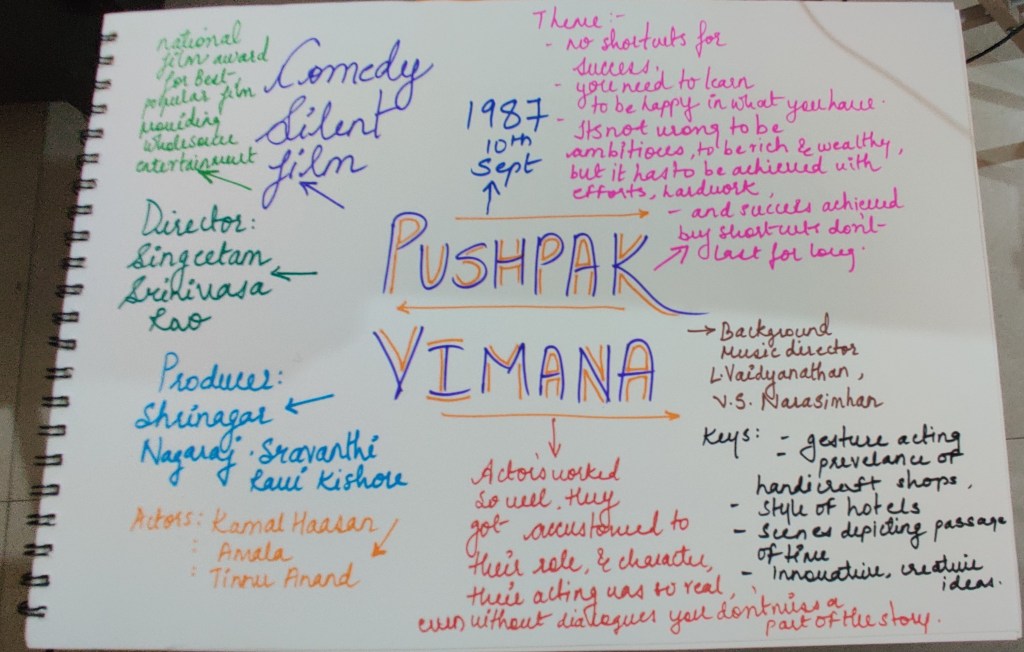 national
film award
for Best
popular film
providing
wholesome
entertainment
Comedy
Silent
film
1987
10th
Sept
Theme :-
- no shortcuts for
success.
- you need to learn
to be happy in what you have.
- Its not wrong to be
ambitious, to be rich & wealthy,
but it has to be achieved with
efforts, hardwork,
- and success achieved
buy shortcuts don't
last for long.
Director:
Singeetam
Srinivasa
Rao
PUSHPAK
VIMANA
Background
Music director
L. Vaidyanathan,
V.S. Narasimhan
Producer:
Shrinagar
Nagaraj . Sravanthi
Ravi Kishore
Actors: Kamal Haasan
: Amala
: Tinnu Anand
Actors worked
so well, they
got accustomed to
their role, & character,
their acting was so real,
even without dialogues you dont miss a
part of the story.
Keys: - gesture acting
prevelance of
handicraft shops,
- Style of hotels
- Scenes depicting passage
of time
- Innovative, creative
ideas.